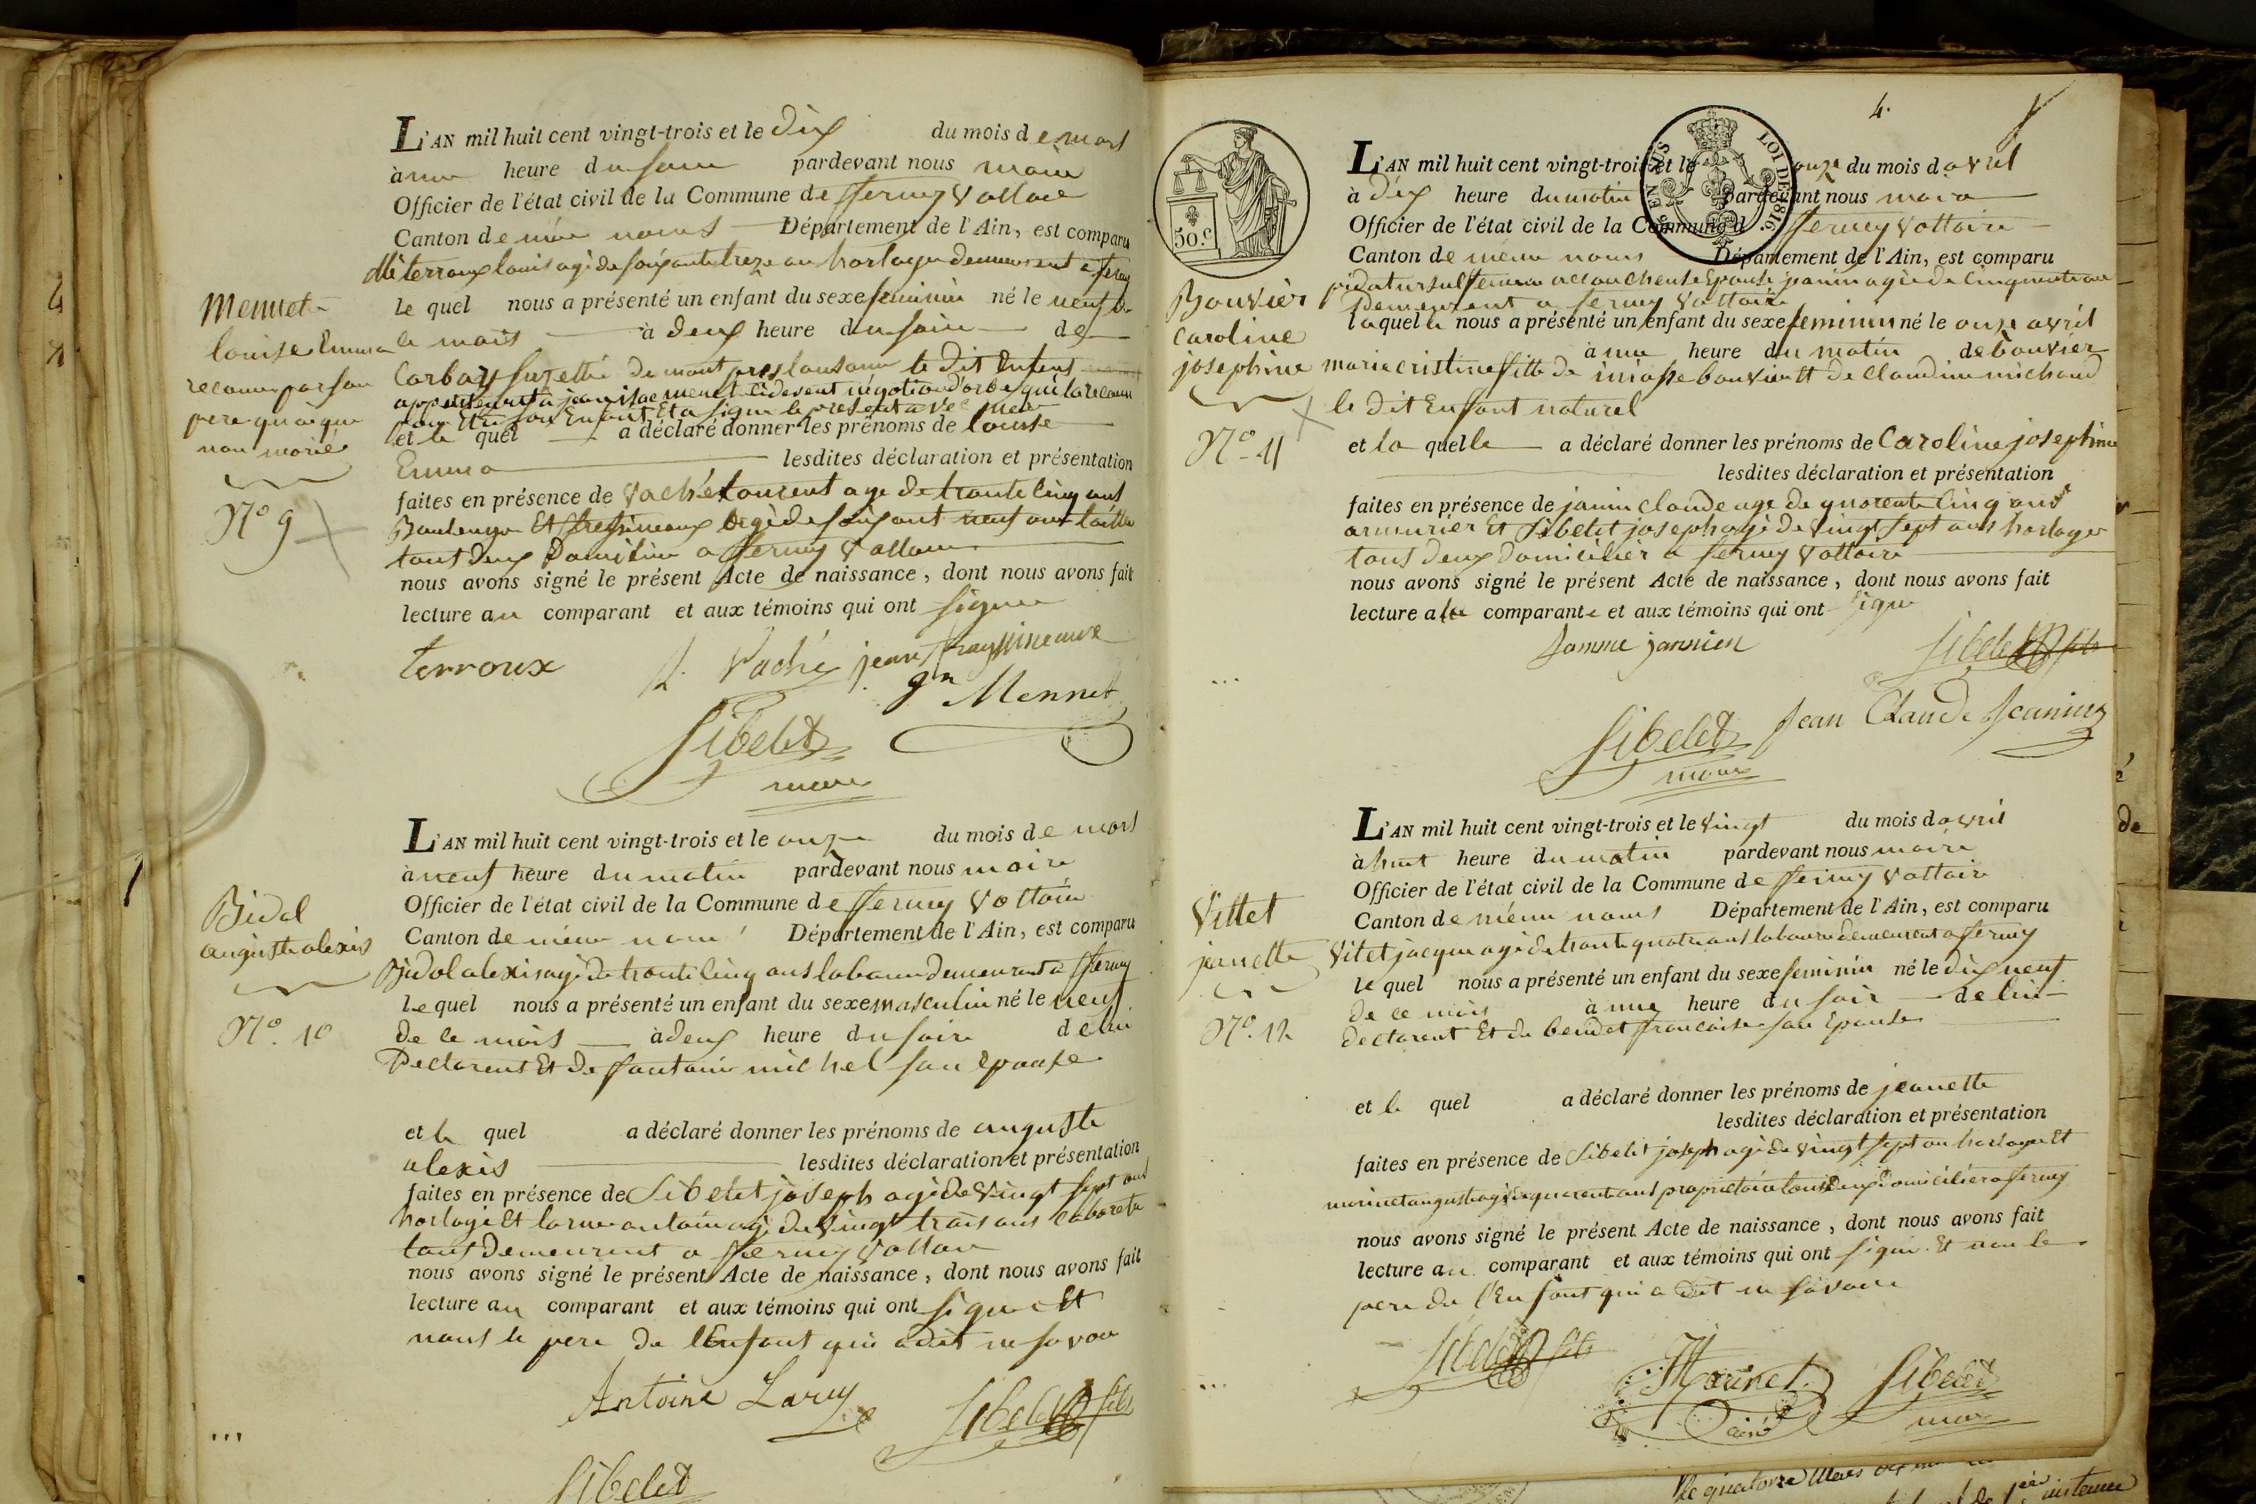 L'AN mil huit cent vingt-trois et le dix du mois de mars
à une heure du soir pardevant nous maire
Officier de l'état civil de la Commune de fferney Voltaire
Canton de même noms Département de l'Ain, est comparu
terroux louis agé de soixante treze ans horloger demeurent a ferney
le quel nous a présenté un enfant du sexe feminin né le neuf de
ce mois à deux heure du soir de
Corbaz suzette de mont pres lausanne le dit Enfent
appartenant a jean isac menet négotiant qui la reconu
pour Etre son Enfant Et a signé le present avec nous
et le quel a déclaré donner les prénoms de louise
Emma lesdites déclaration et présentation
faites en présence de Vaché lourent age de trante cinq ans
Boulenger Et agé de soixant neuf ans
tout deux Domicilier a fferney Voltaire
nous avons signé le présent Acte de naissance, dont nous avons fait
lecture au comparant et aux témoins qui ont signer
terroux
Vaché jean frayssineaux
Mennet
Sibelet
maire
Mennet
louise Emma
reconue par son
pere quoique
non marié
N° 9
L'AN mil huit cent vingt-trois et le onze du mois de mars
à neuf heure du matin pardevant nous maire
Officier de l'état civil de la Commune de fferney Voltaire
Canton de même nom Département de l'Ain, est comparu
Bidol alexis agé de trante cinq ans laboureur demeurant a fferney
le quel nous a présenté un enfant du sexe masculin né le neuf
de ce mois à deux heure du soir de lui
Declarent Et de fontaine michel son Epouse
et le quel a déclaré donner les prénoms de auguste
alexis lesdites déclaration et présentation
faites en présence de Sibelet joseph agé de Vingt sept ans
horloge Et antoine agé de vingt trois ans
tous demeurent a fferney Voltaire
nous avons signé le présent Acte de naissance, dont nous avons fait
lecture au comparant et aux témoins qui ont signé Et
nont le pere de lEnfant qui a dit ne savoir
Antoine Laruy
Sibelet fils
Sibelet
Bidol
auguste alexis
N° 10
4.
LOI DE 1816.
50.c
L'AN mil huit cent vingt-trois et le onze du mois d avril
à dix heure du matin pardevant nous maire
Officier de l'état civil de la Commune d fferney Voltaire
Canton de même noms Département de l'Ain, est comparu
femme accoucheuse Epouse janin agée de cinquante ans
demeurent a ferney Voltaire
laquelle nous a présenté un enfant du sexe feminin né le onze avril
à une heure du matin de bouvier
marie cristine fille de bouvier Et de Claudine michaud
le dit Enfant naturel
et la quelle a déclaré donner les prénoms de Caroline josephine
lesdites déclaration et présentation
faites en présence de janin claude age de quarente cinq ans
armurier Et Sibelet joseph agé de Vingt sept ans horloger
tous deux domicilier a ferney Voltaire
nous avons signé le présent Acte de naissance, dont nous avons fait
lecture a la comparante et aux témoins qui ont signé
famme jannien
Sibelet fils
Sibelet Jean Claude Jeannin
maire
Bouvier
Caroline
josephine
N° 11
L'AN mil huit cent vingt-trois et le Vingt du mois d avril
à huit heure du matin pardevant nous maire
Officier de l'état civil de la Commune de fferney Voltaire
Canton de même noms Département de l'Ain, est comparu
Vitet jacque agé de trante quatre ans laboureur demeurent a ferney
le quel nous a présenté un enfant du sexe feminin né le dix neuf
de ce mois à une heure du soir de lui
declarent Et de francoise son Epouse
et le quel a déclaré donner les prénoms de jeanette
lesdites déclaration et présentation
faites en présence de Sibelet joseph agé de vingt sept ans horloger Et
marinet auguste agé de quarent ans propriétaire tous deux domicilié a ferney
nous avons signé le présent Acte de naissance, dont nous avons fait
lecture au comparant et aux témoins qui ont signé Et non le
pere de l'Enfant qui a dit ne savoir
Sibelet fils
Marinet Sibelet
ainé maire
Vittet
jeanette
N° 12